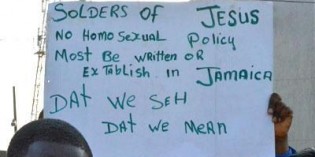 SOLDERS OF JESUS
NO HOMO SEXUAL POLICY
MOST BE WRITTEN OR
EXTABLISH IN JAMAICA
DAT WE SEH
DAT WE MEAN